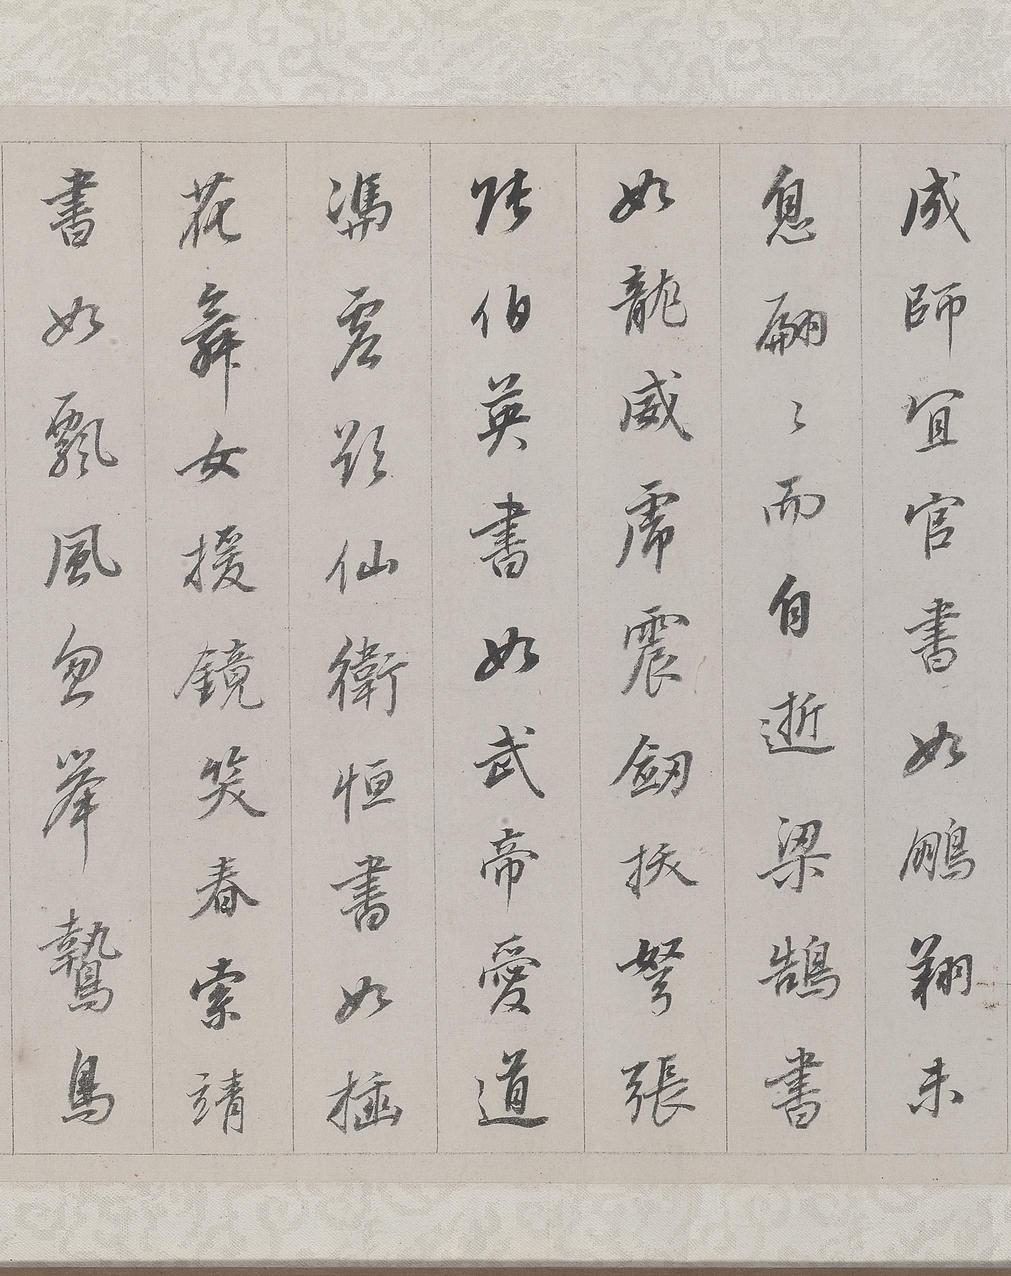 成師宜官書如鵬翔未
息翩〻而自逝梁鵠書
如龍威虎震劔拔弩張
張伯英書如武帝愛道
馮虛欲仙衛恒書如插
花舞女援鏡笑春索靖
書如飄風忽舉鷙鳥